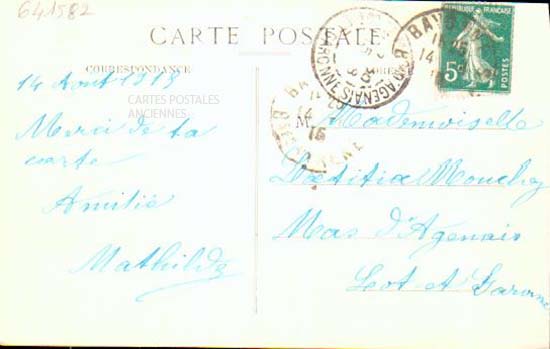 641582
CARTE POSTALE
CORRESPONDANCE
14 Aout 1915
CARTES POSTALES
ANCIENNES
Merci de ta
carte
Amitié
Mathilde
RÉPUBLIQUE FRANÇAISE
5c
POSTES
Mademoiselle
Laetitia Mouchez
Mas d'Agenais
Lot et Garonne